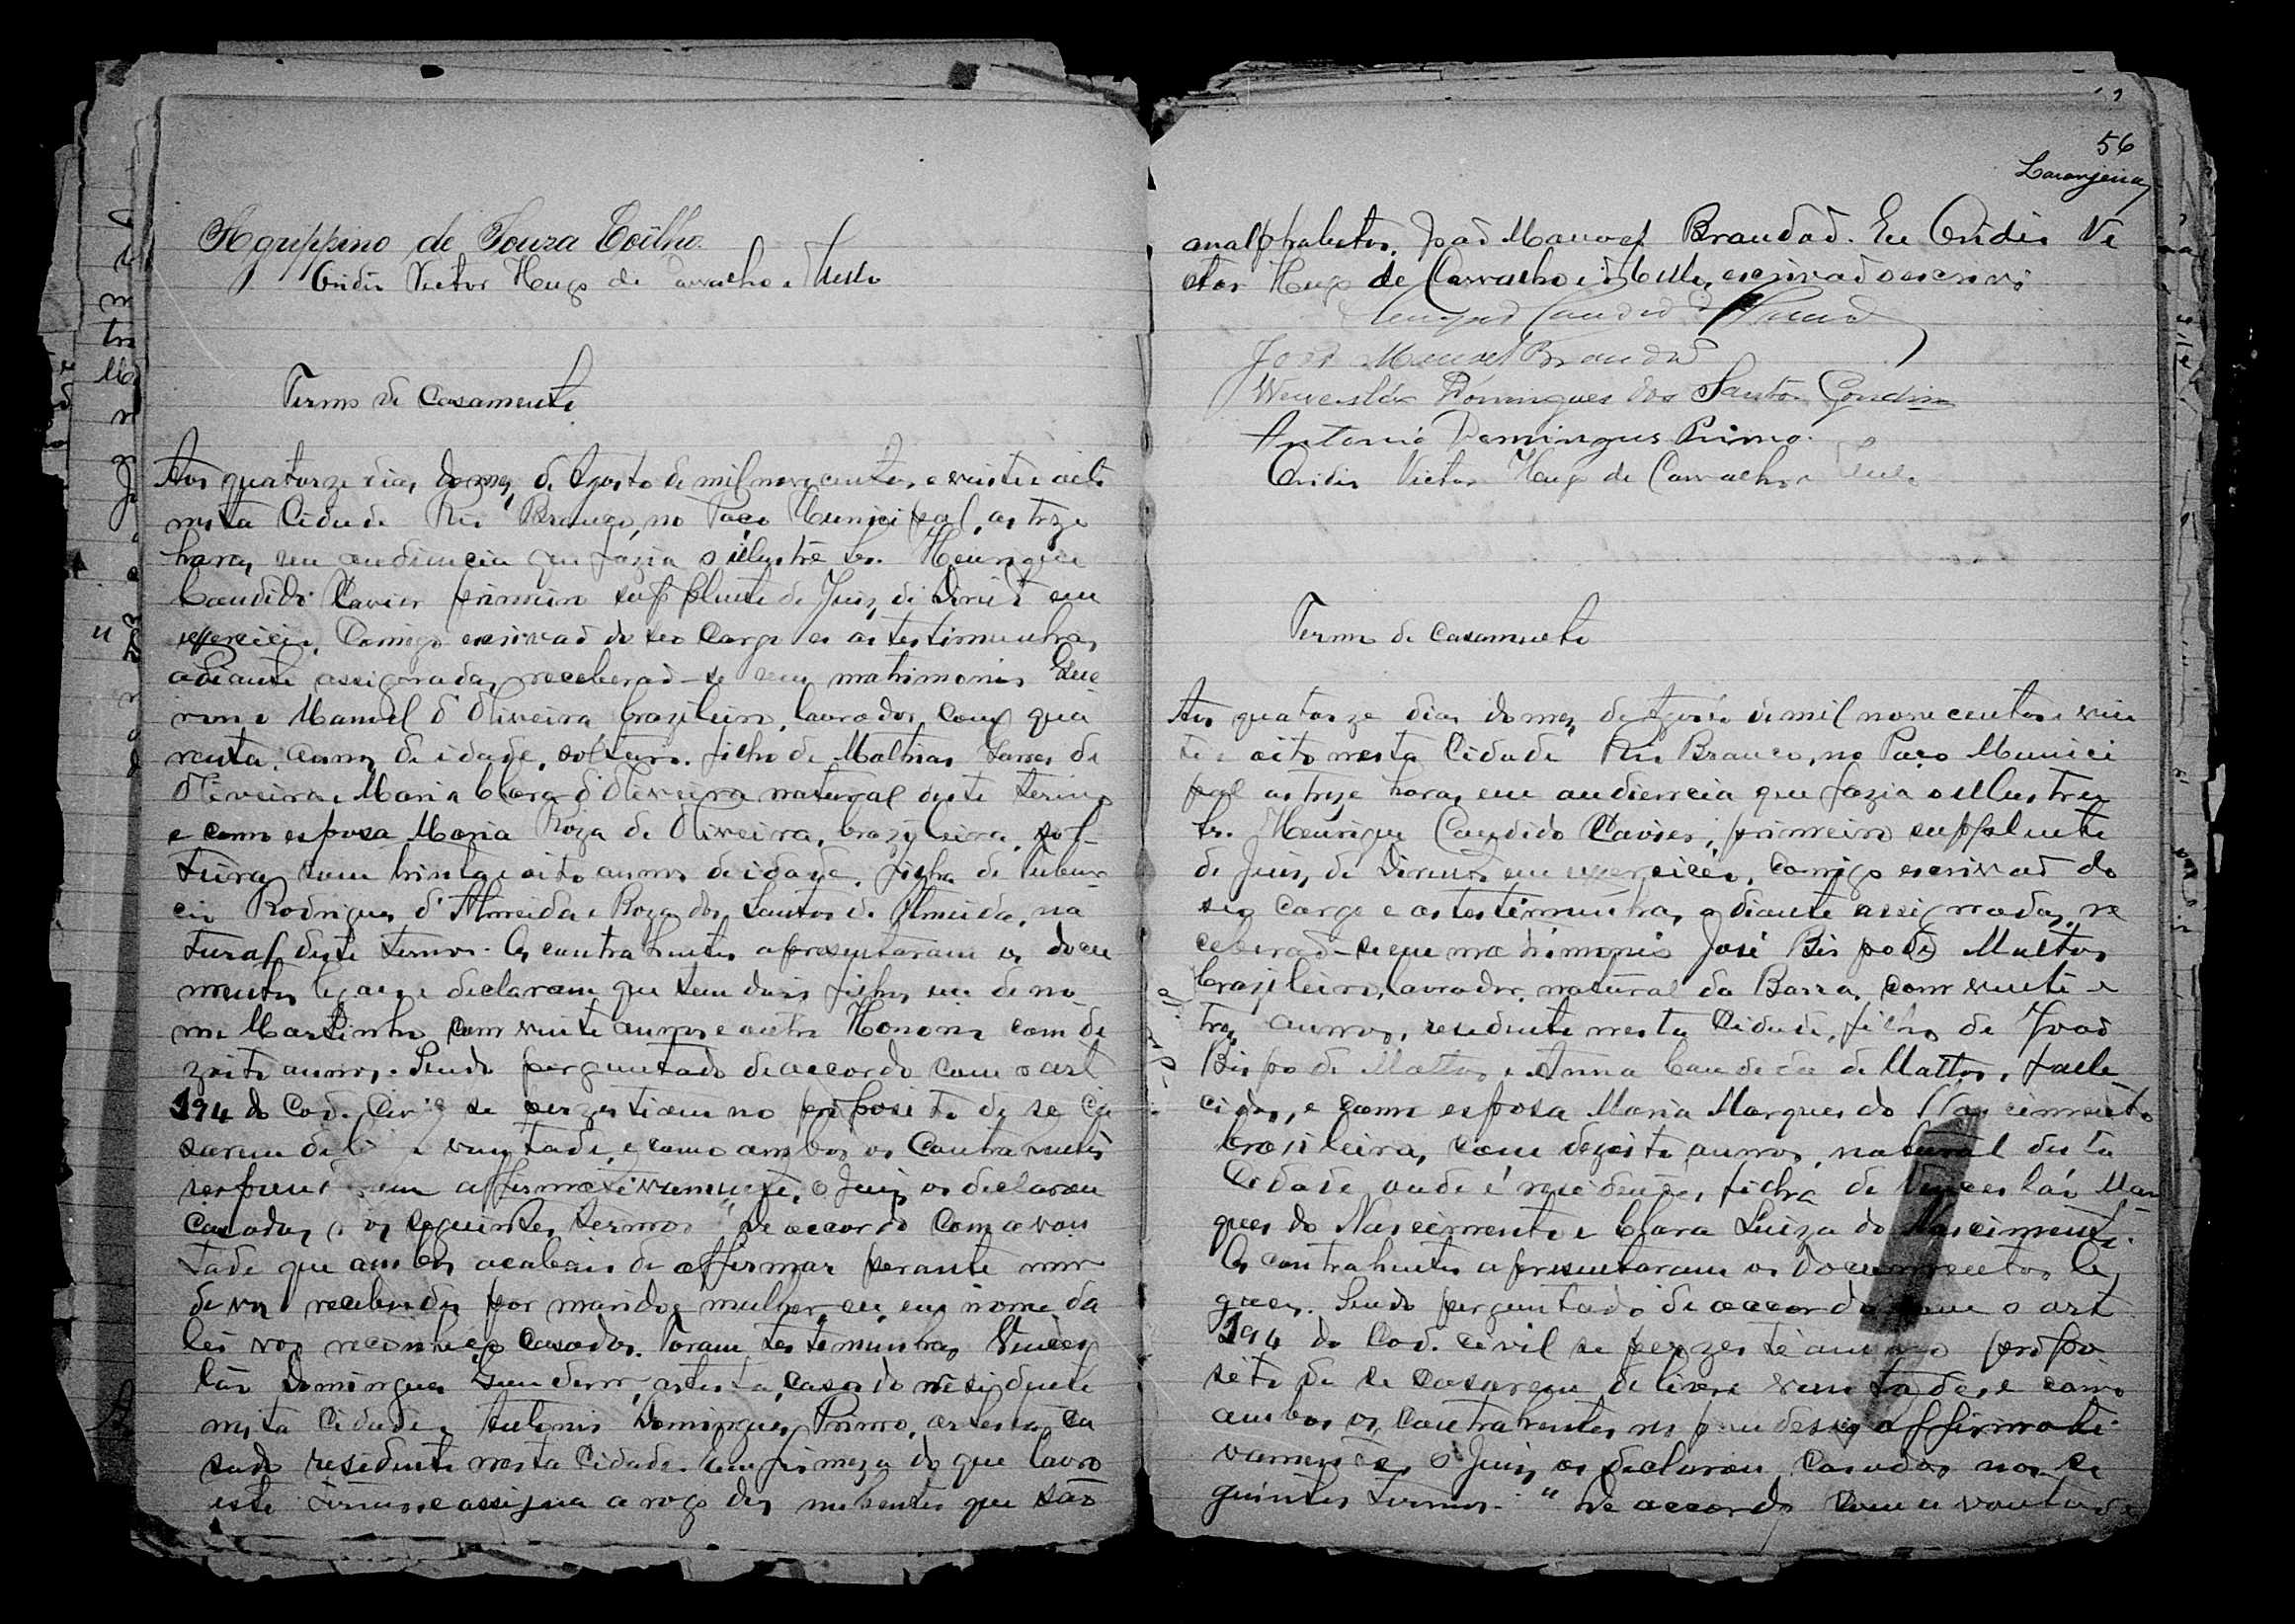 Aguppino de Souza Coêlho.
Ovidio Victor Hugo de Carvalho e
Termo de Casamento
Aos quatorze dias do mez de Agosto de mil novecentos e vinte e oito
nesta Cidade Rio Branco, no Paço Municipal, as treze
horas, em audiencia que fazia o illustre Sr. Henrique
Candido Xavier primeiro supplente de Juiz de Direito em
exercicio, Comigo escrivão do seo Cargo e as testimunhas
adeante assignadas, receberão-se em matrimonio
Manoel d'Oliveira brazileiro, lavrador, com qua
renta annos de idade, solteiro, filho de Mathias de
Oliveira e Maria Clara d'Oliveira natural deste termo
e como esposa Maria Roza de Oliveira, brazileira, sol-
teira, com trinta e oito annos de idade, filha de
cio Rodrigues d'Almeida e Roza dos Santos de Almeida, na
tural deste termo. Os contrahentes apresentaram os docu
mentos legaes e declaram que tem dois filhos, um de no
me Martinho com vinte annos e outro Honorio com de
zoito annos. Sendo perguntado de accordo com o art
194 do Cod. Civil se perzestiam no proposito de se ca
sarem de vontade, e como ambos os Contrahentes
affirmativamente, o Juiz os declarou
casados, os seguintes termos "De accordo com a von
tade que ambos acabais de affirmar perante mim
de vos receberdes por marido e mulher, eu em nome da
lei vos reconheço casados. Foram testemunhas Vences
láo Domingues Gondim, artista, casado residente
nesta Cidade e Antonio Domingues Primo, artista, ca
sado residente nesta Cidade. Em firmeza do que lavro
este termo e assigna a rogo dos nubentes que são
56
Laranjeira
analphabetos, João Manoel Brandão. Eu Ovidio Vi
ctor Hugo de Carvalho e escrivão o escrevi
João Manoel Brandão
Wenceslão Domingues dos Santos Gondim
Antonio Domingues Primo.
Ovidio Victor Hugo de Carvalho e
Termo de casamento
Aos quatorze dias do mez de Agosto de mil nove centos e vin
te e oito nesta Cidade Rio Branco, no Paço Munici
pal as treze horas, em audiencia que fazia o illustre
Sr. Henrique Candido Xavier, primeiro supplente
de Juiz de Direito em exercicio, comigo escrivão do
seo cargo e as testimunhas, adiante assignadas, re
ceberão-se em matrimonio José Bispo de Mattos
brasileiro, lavrador, natural da Barra, com vinte e
tres annos, residente nesta Cidade, filho de João
Bispo de Mattos e Anna Candida de Mattos, falle
cidos, e como esposa Maria Marques do Nascimento
brasileira, com dezoito annos, natural desta
Cidade onde é residente, filha de Venceslão Mar
ques do Nascimento e Clara Luiza do Nascimento.
Os contrahentes apresentaram os documentos le
gaes. Sendo perguntado de accordo com o art
194 do Cod. civil se perzesteam no propo
sito de se casarem de livre vontade, e como
ambos os contrahentes respondesse affirmati
vamente, o Juiz os declarou casados nos se
guintes termos. "De accordo com a vontade